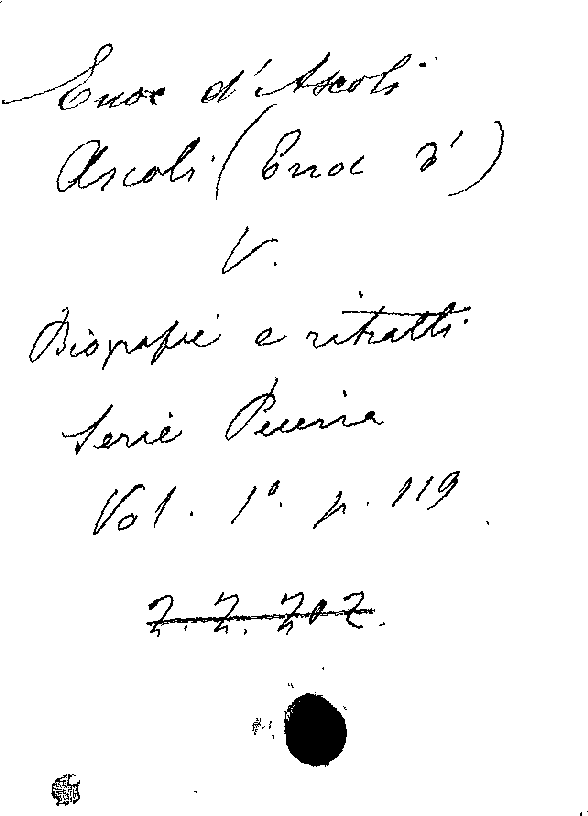 Enoc d'Ascoli
Ascoli (Enoc d')
V.
Biografie e ritratti
Serie Picena
Vol. 1º. p. 119